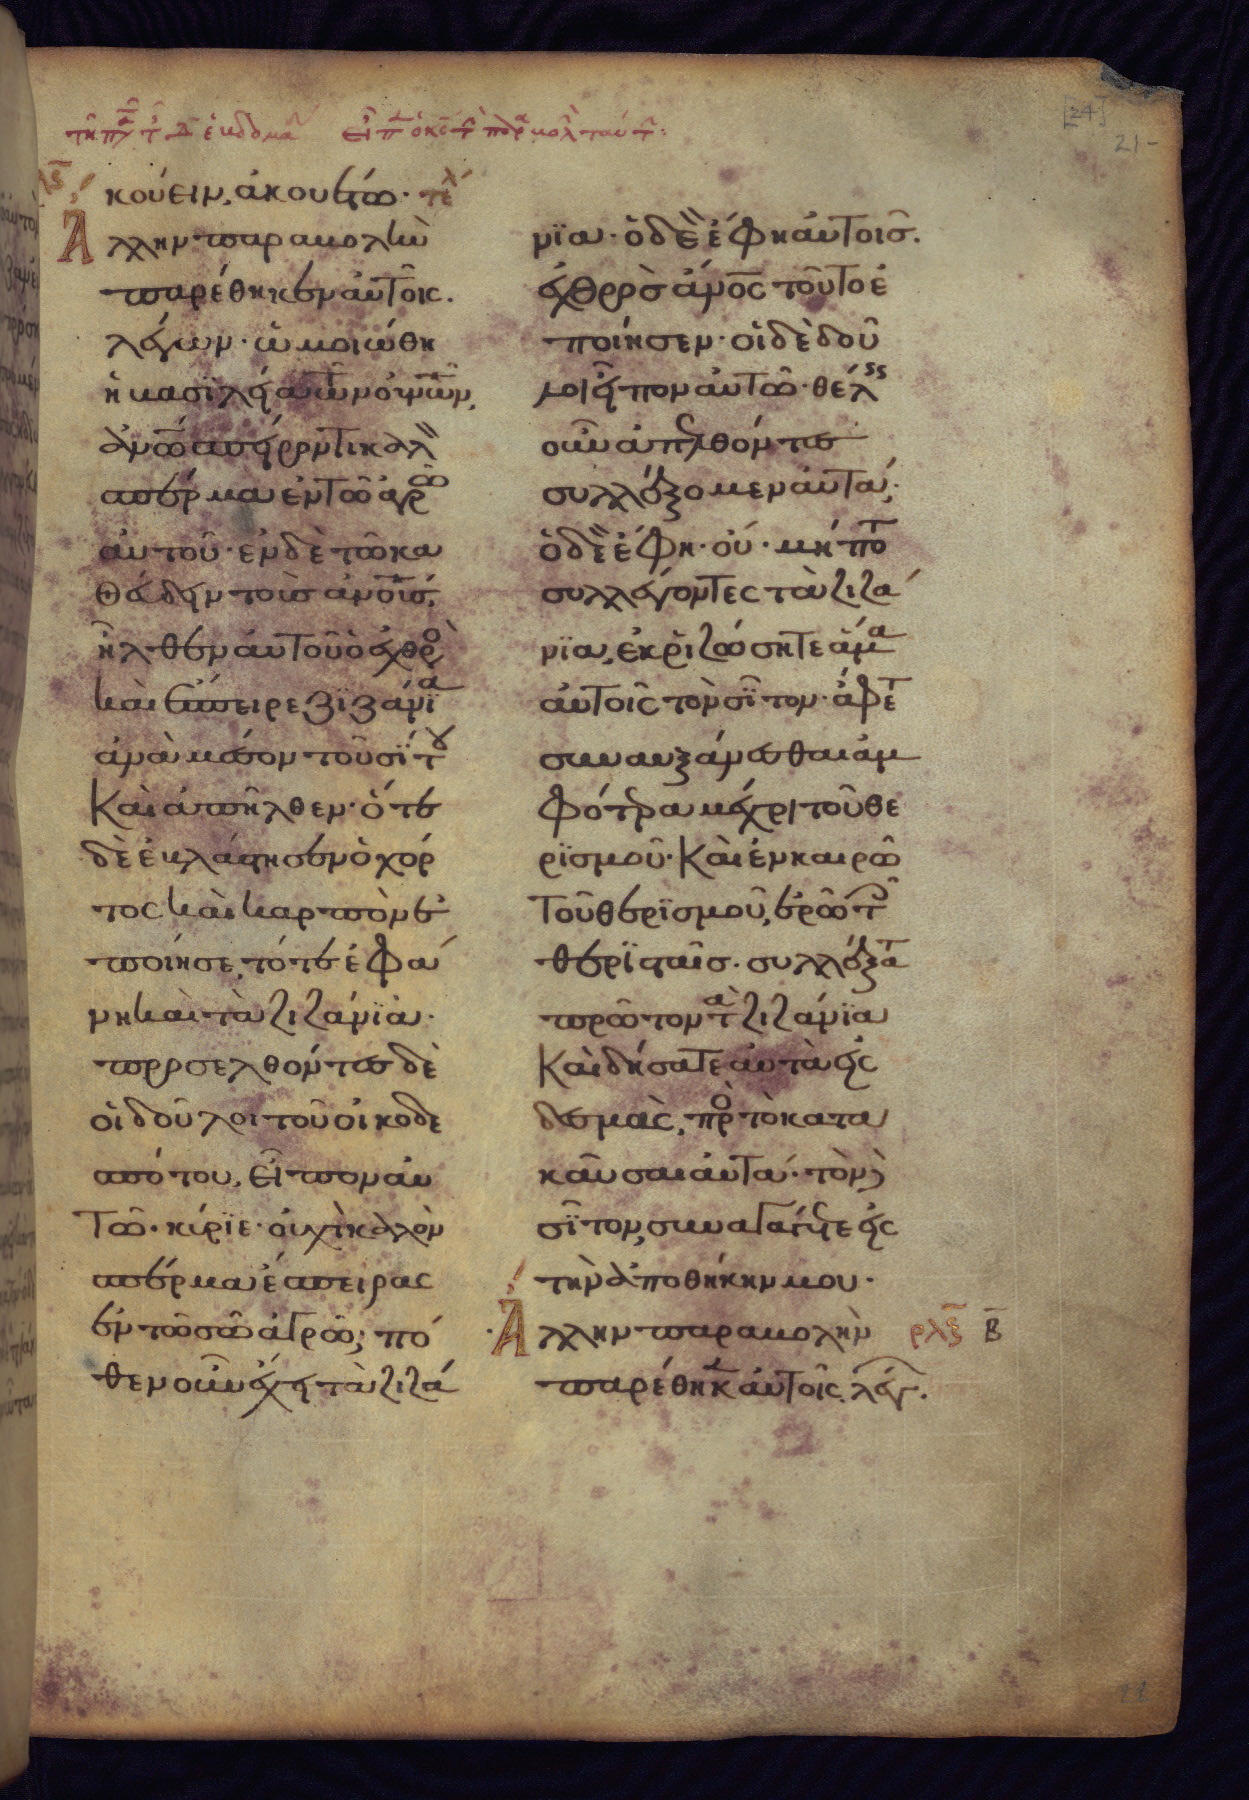 [24]
21-
κούειν, ἀκουέτω· τελ
Ἄλλην παραβολὴν
παρέθηκεν αὐτοῖς.
λέγων· ὡμοιώθη
ἡ βασιλεία τῶν οὐρανῶν,
ἀνῶ σπείροντι καλὸν
σπέρμα ἐν τῶ ἀγρῶ
αὐτοῦ· ἐν δὲ τῶ κα
θεύδειν τοὺς ἀνοὺς,
ἦλθεν αὐτοῦ ὁ ἐχθρὸ
καὶ ἔσπειρε ζιζάνϊα
ἀνὰ μέσον τοῦ σίτου
Καὶ ἀπῆλθεν· ὅτε
δὲ ἐβλάστησεν ὁ χόρ
τος καὶ καρπὸν ἐ
ποίησε, τότε ἐφά
νη καὶ τὰ ζιζάνϊα·
προσελθόντες δὲ
οἱ δοῦλοι τοῦ οἰκοδε
σπότου, εἶπον αὐ
τῶ· κύριε· οὐχὶ καλὸν
σπέρμα ἔσπειρας
ἐν τῶ σῶ ἀγρῶ; πό
θεν οὖν ἔχει τὰ ζιζά
νϊα· ὁ δὲ ἔφη αὐτοῖς.
ἐχθρὸς ἄνος τοῦτο ἐ
ποίησεν· οἱ δὲ δοῦ
λοι εἶπον αὐτῶ· θέλεις
οὖν ἀπελθόντες
συλλέξομεν αὐτά;
ὁ δὲ ἔφη· οὔ· μήποτε
συλλέγοντες τὰ ζιζά
νϊα, ἐκριζώσητε ἅμα
αὐτοῖς τὸν σῖτον· ἄφετε
συναυξάνεσθαι ἀμ
φότερα μέχρι τοῦ θε
ρϊσμοῦ· Καὶ ἐν καιρῶ
τοῦ θερϊσμοῦ, ἐρῶ τοῖς
θερϊσταῖς· συλλέξατε
πρῶτον τὰ ζιζάνϊα
Καὶ δήσατε αὐτὰ εἰς
δεσμὰς, πρὸς τὸ κατα
καῦσαι αὐτά· τὸν δὲ
σῖτον, συναγάγετε εἰς
τὴν ἀποθήκην μου·
Ἄλλην παραβολὴν ρλζ Β
παρέθηκεν αὐτοῖς λέγων.